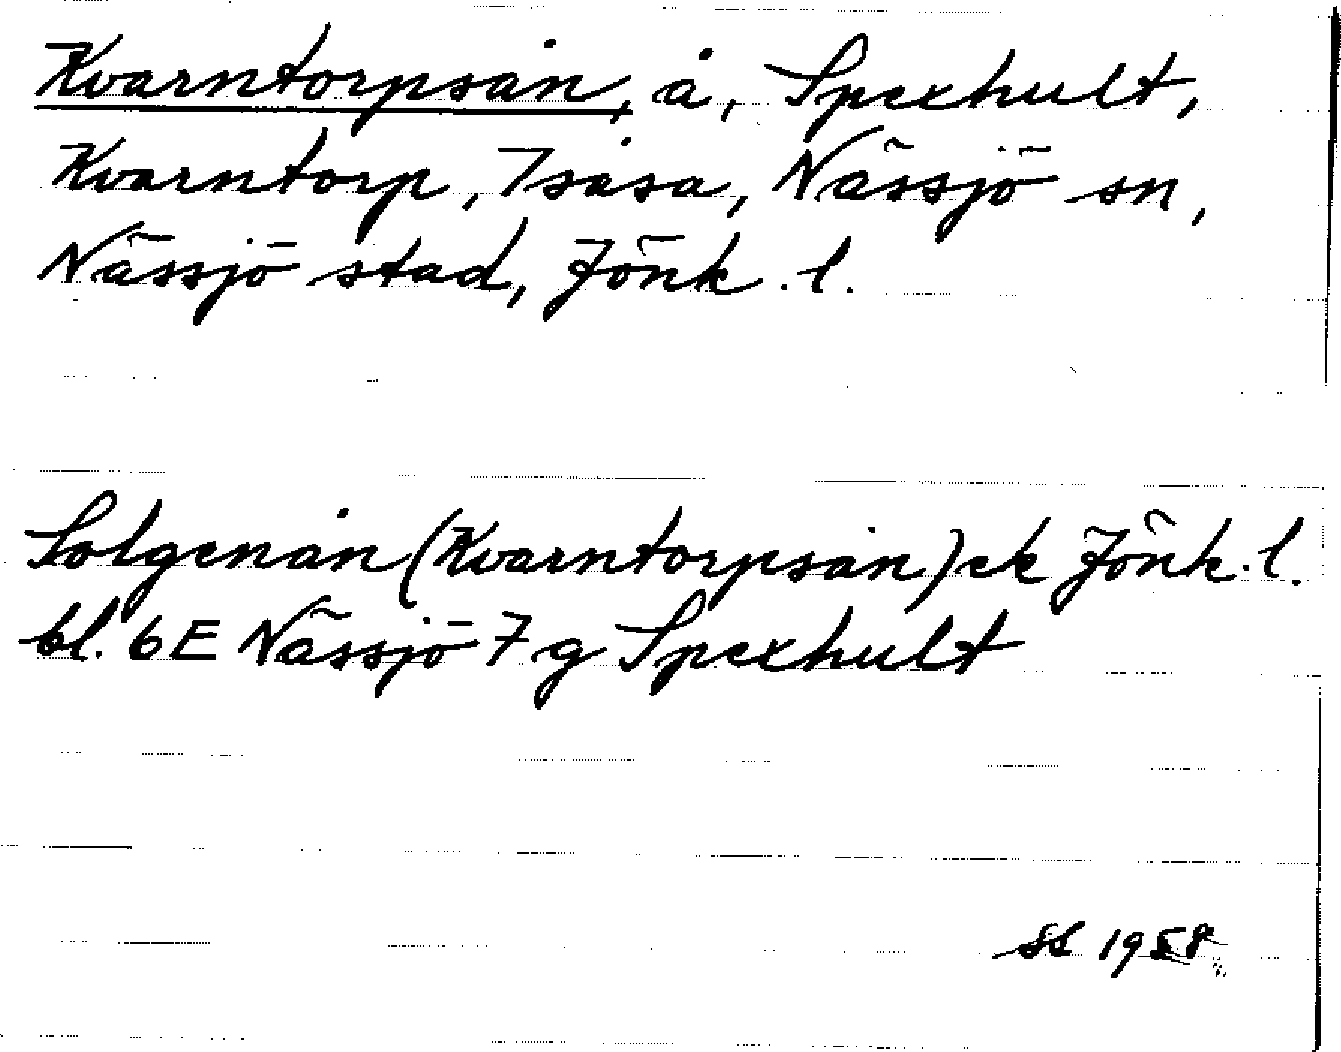 Kvarntorpsån, å, Spexhult,
Kvarntorp, Isåsa, Nässjö sn,
Nässjö stad, Jönk. l.
Solgenån (Kvarntorpsån) ek Jönk. l.
bl. 6E Nässjö 7 g Spexhult
1958